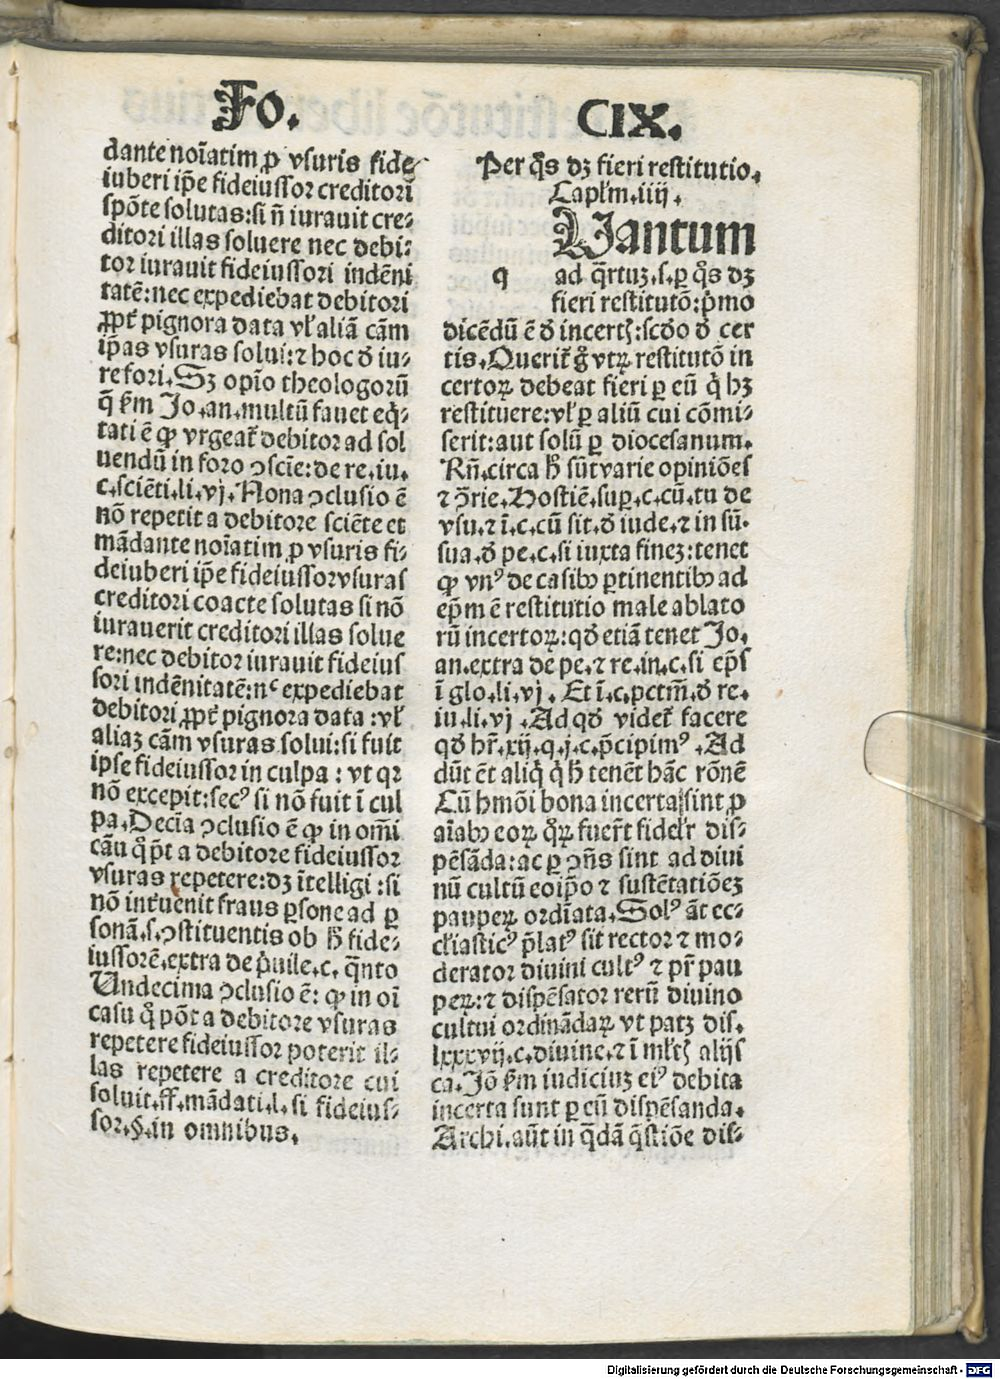 Fo. CIX.
dante noīatim ꝓ vsuris fide
iuberi ip̄e fideiussor creditori
spōte solutas: si n̄ iurauit cre⸗
ditori illas soluere nec debi⸗
tor iurauit fideiussori indēni
tatē: nec expediebat debitori
ꝓpt̄ pignora data vl̓ aliā cām
ip̄as vsuras solui: ⁊ hoc đ iu⸗
re fori. Sꝫ opīo theologorū
q̄ ẜm Jo. an. multū fauet eq̇⸗
tati ē ꝙ vrgeat̄ debitor ad sol
uendū in foro ↄscīe: de re. iu.
c. sciēti. li. vj. Nona ↄclusio ē
nō repetit a debitore sciēte et
mādante noīatim ꝓ vsuris fi⸗
deiuberi ip̄e fideiussor vsuras
creditori coacte solutas si nō
iurauerit creditori illas solue
re: nec debitor iurauit fideius
sori indēnitatē: nᶜ expediebat
debitori ꝓpt̄ pignora data: vl̓
aliaꝫ cām vsuras solui: si fuit
ipse fideiussor in culpa: vt qꝛ
nō excepit: secꝰ si nō fuit ī cul
pa. Decīa ↄclusio ē ꝙ in om̄i
cāu q̊ p̄t a debitore fideiussor
vsuras repetere: dꝫ ītelligi: si
nō int̓uēnit fraus ꝑsone ad ꝑ
sonā. s. ↄstituentis ob h̄ fide⸗
iussorē. extra de p̓uile. c. q̄nto
Undecima ↄclusio ē: ꝙ in oī
casu q̊ pōt a debitore vsuras
repetere fideiussor poterit il⸗
las repetere a creditore cui
soluit. ff. mādati. l. si fideius⸗
sor. §. in omnibus.
Per q̊s dꝫ fieri restitutio.
Capl̓m. iiij.
q Uantum
ad q̄rtuꝫ. s. ꝑ q̊s dꝫ
fieri restitutō: p̓mo
dicēdū ē đ incert̓: scđo đ cer
tis. Querit̄ g̊ vtꝝ restitutō in
certoꝝ debeat fieri ꝑ eū q̇ hꝫ
restituere: vl̓ ꝑ aliū cui cōmi⸗
serit: aut solū ꝑ diocesanum.
Rn̄. circa h̄ sūt varie opiniōes
⁊ ↄ̄rie. Hostiē. suꝑ. c. cū. tu de
vsu. ⁊ ī. c. cū sit. đ iude. ⁊ in sū.
sua. đ pe. c. si iuxta fineꝫ: tenet
ꝙ vnꝰ de casibꝫ ꝑtinentibꝫ ad
ep̄m ē restitutio male ablato
rū incertoꝝ: qđ etiā tenet Jo.
an. extra de pe. ⁊ re. in. c. si ep̄s
ī glo. li. vj. Et ī. c. pctm̄. đ re.
iu. li. vj. Ad qđ videt̄ facere
qđ hr̄. xij. q. j. c. p̄cipimꝰ. Ad
dūt ēt aliq̇ q̇ h̄ tenēt hāc rōnē
Cū hmōi bona incerta sint ꝓ
aīabꝫ eoꝝ q̊ꝝ fuer̄t fidel̓r dis⸗
pēsāda: ac ꝑ ↄn̄s sint ad diui
nū cultū eoip̄o ⁊ sustētatiōeꝫ
paupeꝝ ordīata. Solꝰ āt ec⸗
cl̓iasticꝰ p̄latꝰ sit rector ⁊ mo⸗
derator diuini cultꝰ ⁊ pr̄ pau
peꝝ: ⁊ dispēsator rerū diuino
cultui ordināda ꝝ vt patꝫ dis.
lxxxvij. c. diuine. ⁊ ī ml̓t̓ alijs
ca. Jō ẜm iudiciuꝫ eiꝰ debita
incerta sunt ꝑ eū dispēsanda.
Archi. aūt in q̄dā q̄stiōe dis⸗
Digitalisierung gefördert durch die Deutsche Forschungsgemeinschaft - DFG